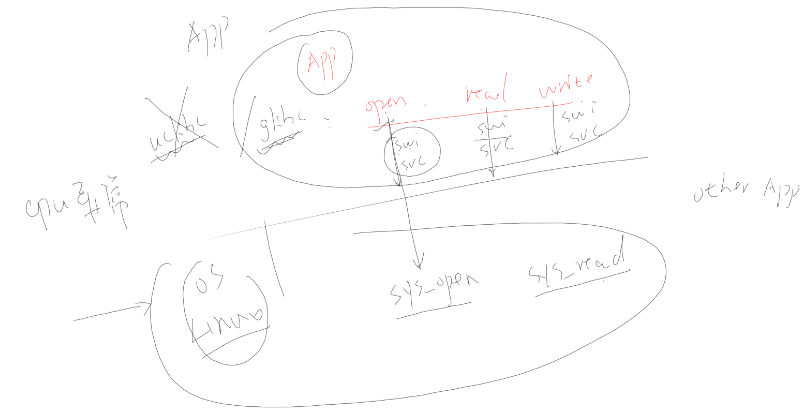 App
App
uclibc
glibc :
open
read
write
swi
svc
swi
svc
swi
svc
cpu
other App
OS
Linux
sys_open
sys_read